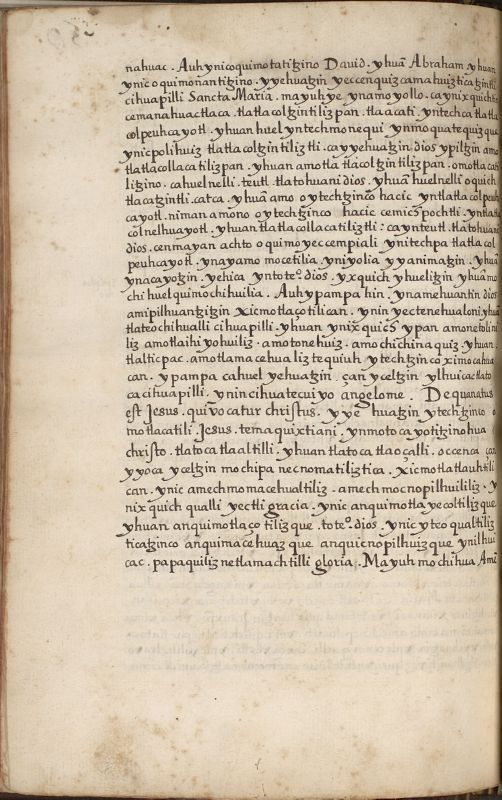 nahuac. Auh ynic oquimotatitzino David. yhuā Abraham yhuan
ynic oquimonantitzino. yyehuatzin yeccenquizcamahuiztica tzintli
cihuapilli Sancta Maria. mayuhye ynamoyollo. ca yn ixquichi
cemanahuac tlaca. tlatlacoltzintilizpan. tlaacati. yntechca tlatla
colpeuhcayotl. yhuan huel yntech monequi ynmoquatequizque
ynic polihuiz tlatlacoltzintiliztli. ca yyehuatzin dios ypiltzin amo
tlatlacollacatilizpan. yhuan amo tlatlacoltzintilizpan. omotlacati
litzino. ca huelnelli. teutl tlatohuani dios. yhuā huelnelli oquich
tlacatzintli. catca. yhuā amo oytechtzinco hacic yntlatlacolpeuh
cayotl. niman amono oytechtzinco hacic cemicspochtli. yntlatla
colnelhuayotl. yhuan tlatlacollacatiliztli: ca ynteutl. tlatohuani
dios. cenmayan achto oquimoyeccempiali ynitechpa tlatlacol
peuhcayotl. ynayamo mocetilia. yniyolia yyanimatzin. yhuā
ynacayotzin. yehica yntoteº. dios. yxquich yhuelitzin yhuā mo
chi huel quimochihuilia. Auh ypampa hin. ynamehuantin dios
amipilhuantzitzin xicmotlaçotilican. ynin yectenehualoni. yhuā
tlateochihualli cihuapilli. yhuan ynixquics ypan amonetolini
liz amotlaihiyohuiliz. amotonehuiz. amochichinaquiz. yhuan.
tlalticpac. amotlamacehualiztequiuh ytechtzinco ximocahua
can. ypampa cahuel yehuatzin. çan yceltzin ylhuicac tlato
cacihuapilli. ynincihuatecuiyo angelome. De qua natus
est Jesus. qui vocatur christus. yye huatzin ytechtzinco o
motlacatili Jesus. temaquixtiani. ynmotocayotitzinohua
christo. tlatocatlaaltilli. yhuan tlatocatlaoçalli. occenca çan
yyoca yceltzin mochipa necnomatiliztica. xicmotlatlauhtili
can. ynic amechmomacehualtiliz. amechmocnopilhuililiz. y
nixquich qualli yectli gracia. ynic anquimotlayecoltilizque
yhuan anquimotlaçotilizque. toteº. dios. ynic yteoqualtiliz
ticatzinco anquimacehuazque anquicnopilhuizque ynilhui
cac. papaquiliznetlamachtilli gloria. Mayuh mochihua Amē